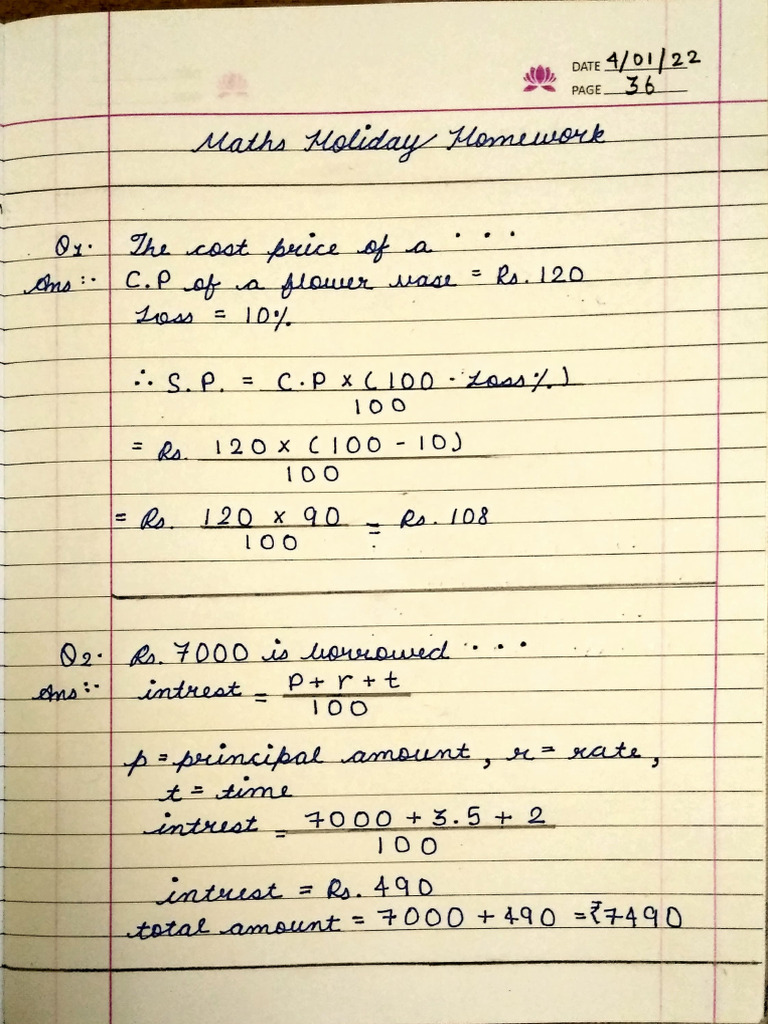 DATE 4/01/22
PAGE 36
Maths Holiday Homework
Q1. The cost price of a ...
Ans:- C.P of a flower vase = Rs. 120
Loss = 10%
∴ S.P. = C.P x (100 - Loss%)
100
= Rs. 120 x (100 - 10)
100
= Rs. 120 x 90 = Rs. 108
100
Q2. Rs. 7000 is borrowed ...
Ans:- intrest = P + r + t
100
p = principal amount, r = rate,
t = time
intrest = 7000 + 3.5 + 2
100
intrest = Rs. 490
total amount = 7000 + 490 = ₹7490